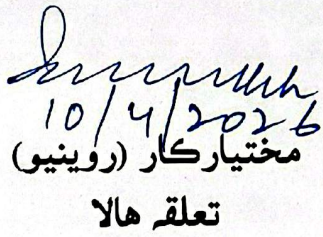 10/4/2026
مختيارڪار (روينيو)
تعلقہ هالا